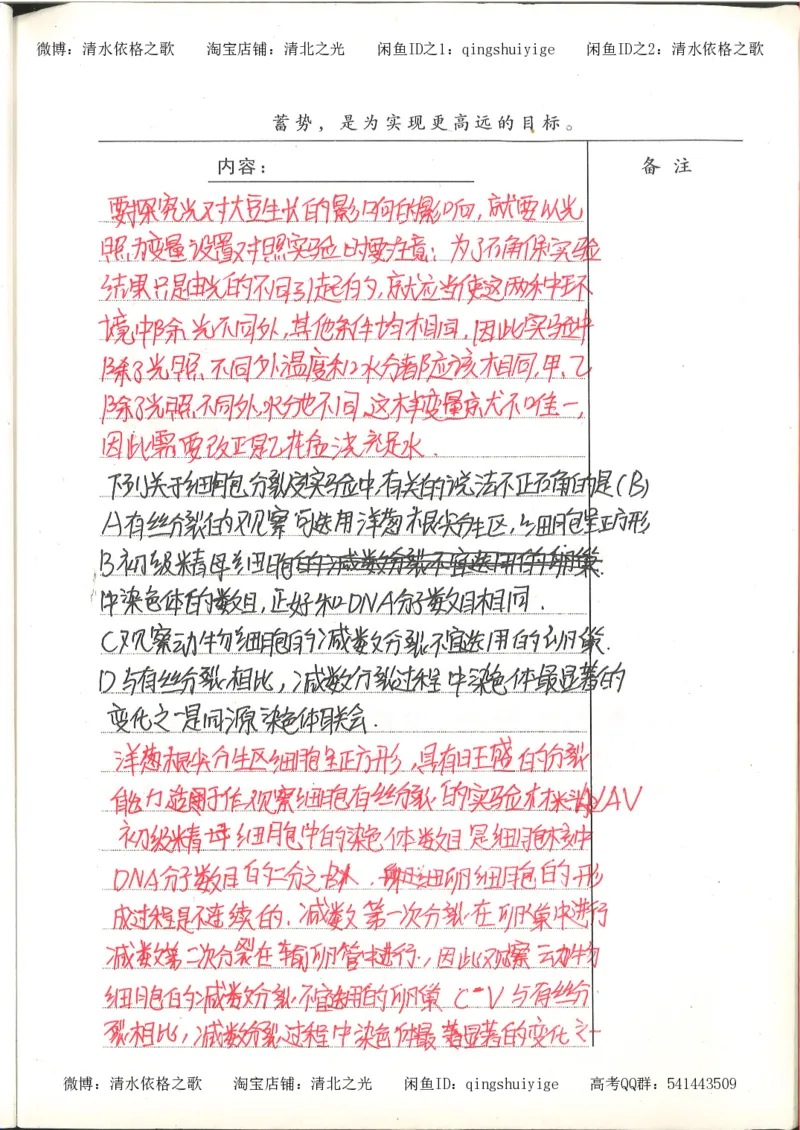 微博：清水依格之歌 淘宝店铺：清北之光 闲鱼ID之1：qingshuiyige 闲鱼ID之2：清水依格之歌
蓄势，是为实现更高远的目标。
内容： 备注
要探究光对大豆生长的影响的影响，就要以光
照为变量设置对照实验时要注意：为了确保实验
结果只是由光的不同引起的，就应当使这两种环
境中除光不同外，其他条件均相同，因此实验中
除了光照不同外温度和水分都应该相同，甲、乙
除了光照不同外，水分也不同，这样变量就不唯一，
因此需要改正是乙花盆浇充足水．
下列关于细胞分裂及实验中有关的说法不正确的是（B）
A有丝分裂的观察可选用洋葱根尖分生区，细胞呈正方形
B初级精母细胞的减数分裂不宜选用的卵巢．
中染色体的数目，正好和DNA分子数目相同．
C观察动物细胞的减数分裂不宜选用的卵巢．
D与有丝分裂相比，减数分裂过程中染色体最显著的
变化之一是同源染色体联会．
洋葱根尖分生区细胞呈正方形，具有旺盛的分裂
能力适用于作观察细胞有丝分裂的实验材料 AV
初级精母细胞中的染色体数目是细胞核中
DNA分子数目的二分之 ．卵细胞的形
成过程是不连续的．减数第一次分裂在卵巢中进行
减数第二次分裂在输卵管中进行，因此观察动物
细胞的减数分裂不宜选用的卵巢 C-V 与有丝分
裂相比，减数分裂过程中染色体最显著的变化之一
微博：清水依格之歌 淘宝店铺：清北之光 闲鱼ID：qingshuiyige 高考QQ群：541443509